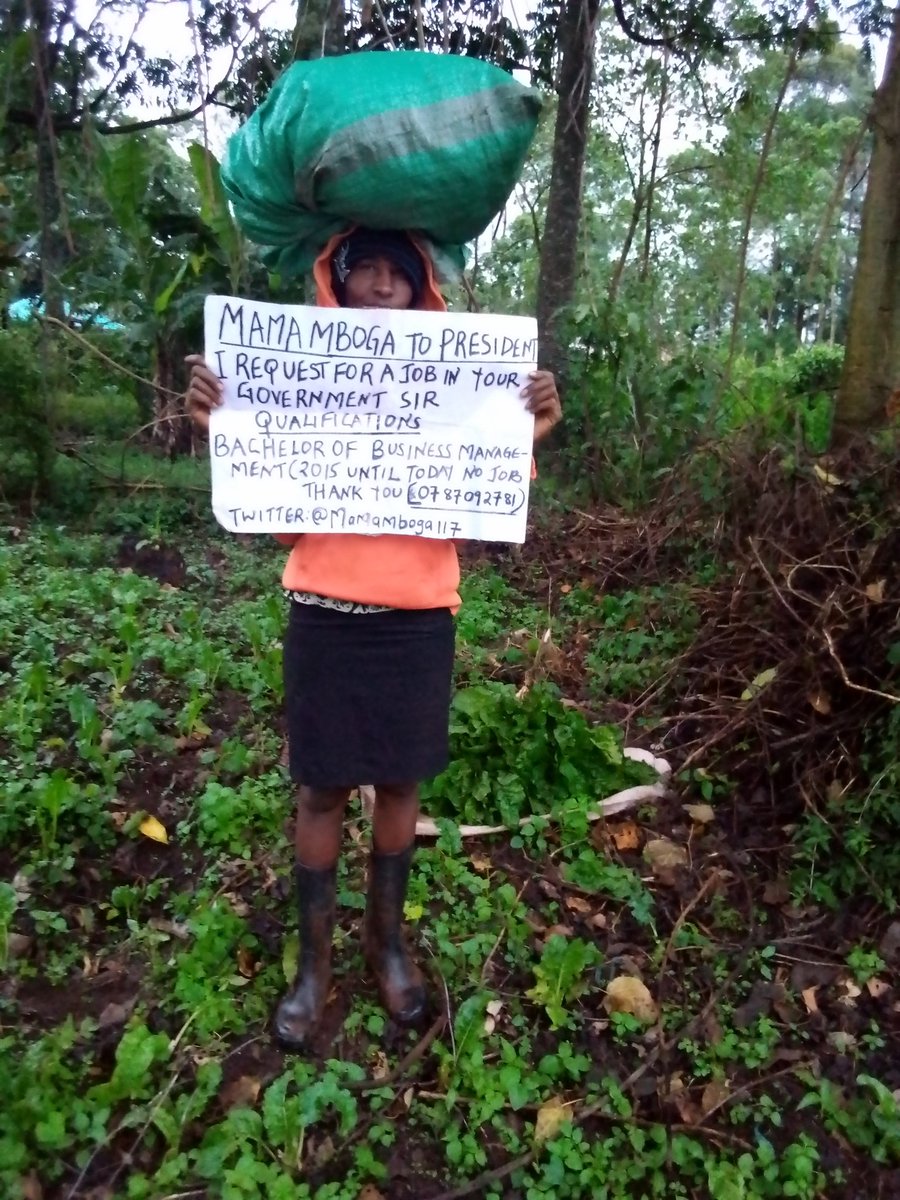 MAMA MBOGA TO PRESIDENT
I REQUEST FOR A JOB IN YOUR
GOVERNMENT SIR
QUALIFICATIONS
BACHELOR OF BUSINESS MANAGE-
MENT (2015 UNTIL TODAY NO JOB
THANK YOU (0787092781)
TWITTER:@Mamamboga117